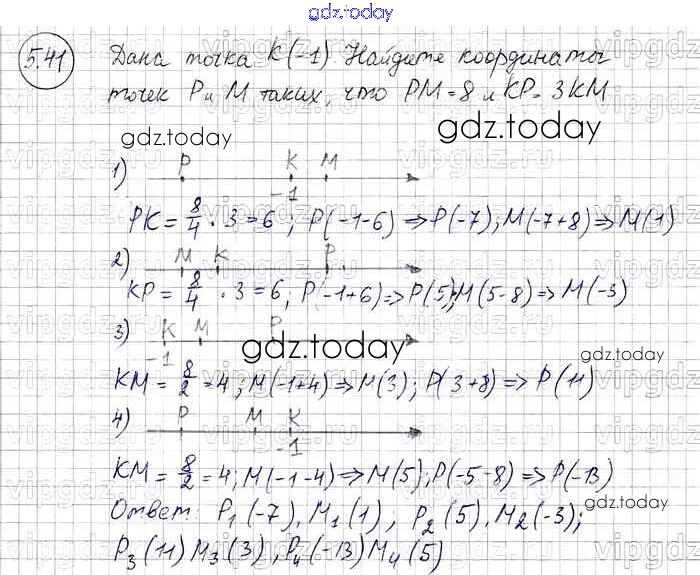 gdz.today
5.41 Дана точка K(-1) Найдите координаты
точек P и M таких, что PM = 8 и KP = 3KM
gdz.today
gdz.today
1) P K M
-1
PK = 8/4 · 3 = 6 ; P(-1-6) => P(-7), M(-7+8) => M(1)
2) M K P
KP = 8/4 · 3 = 6; P(-1+6) => P(5); M(5-8) => M(-3)
3) K M P
-1
gdz.today
gdz.today
KM = 8/2 = 4 ; M(-1+4) => M(3); P(3+8) => P(11)
4) P M K
-1
KM = 8/2 = 4; M(-1-4) => M(5); P(-5-8) => P(-13)
Ответ: P1(-7), M1(1); P2(5), M2(-3);
gdz.today
P3(11) M3(3), P4(-13) M4(5)